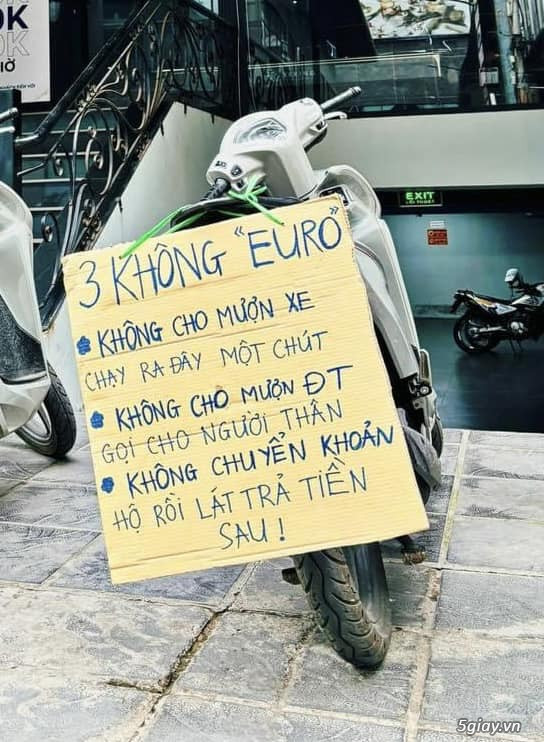 OK
OK
GIỜ
EXIT
3 KHÔNG "EURO"
KHÔNG CHO MƯỢN XE
CHẠY RA ĐÂY MỘT CHÚT
KHÔNG CHO MƯỢN ĐT
GỌI CHO NGƯỜI THÂN
KHÔNG CHUYỂN KHOẢN
HỘ RỒI LÁT TRẢ TIỀN
SAU!
5giay.vn